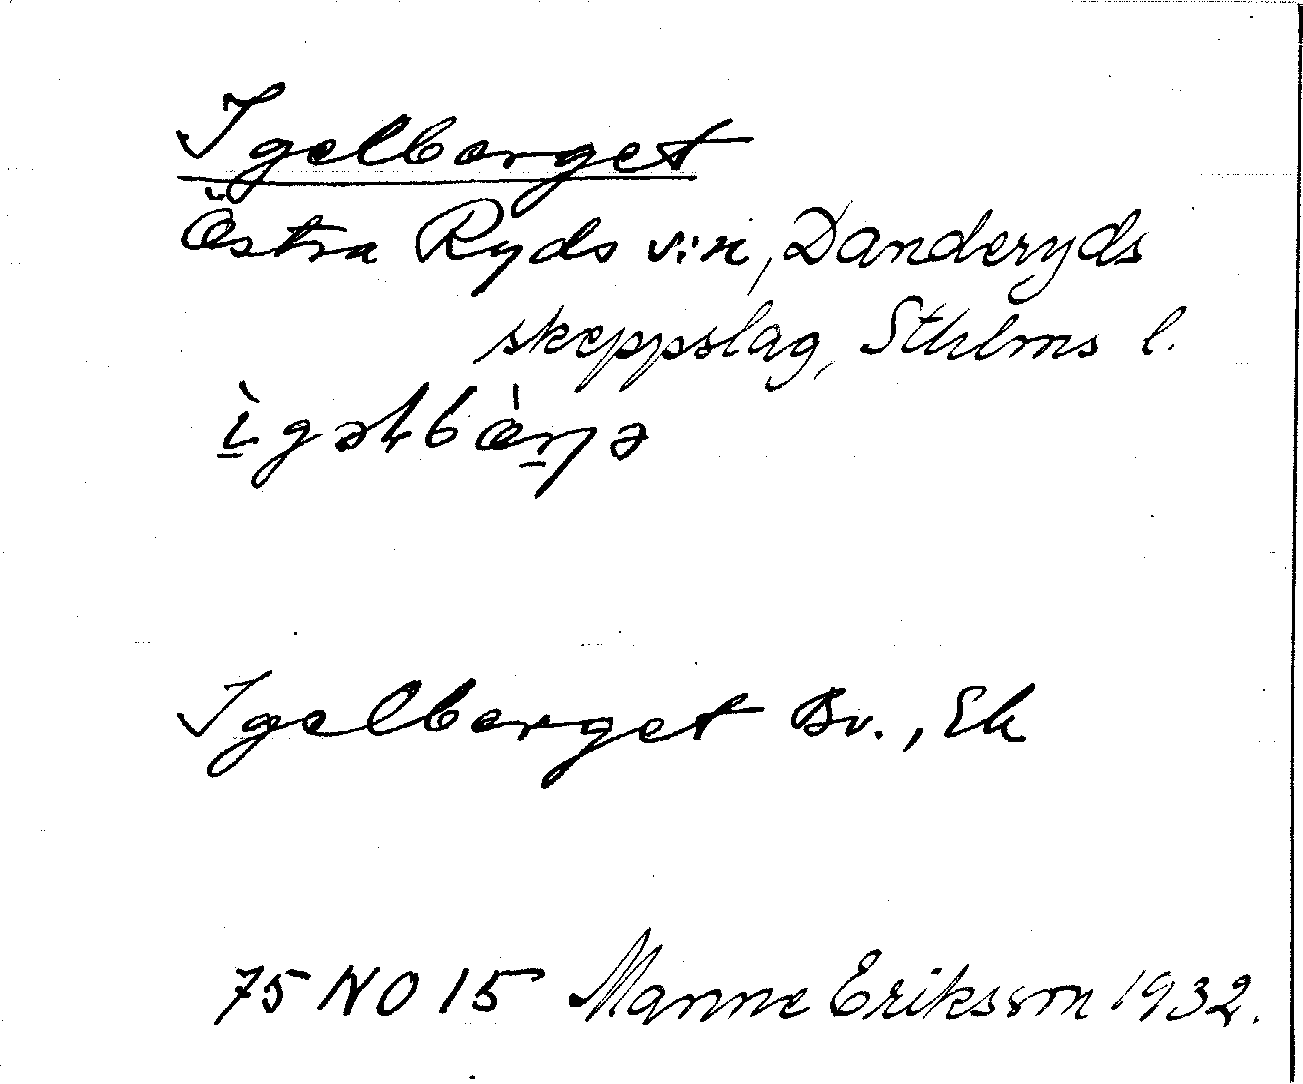 Igelberget
Östra Ryds sn, Danderyds
skeppslag, Sthlms l.
Igelberget Bv., Ek
75 NO 15 Manne Eriksson 1932.